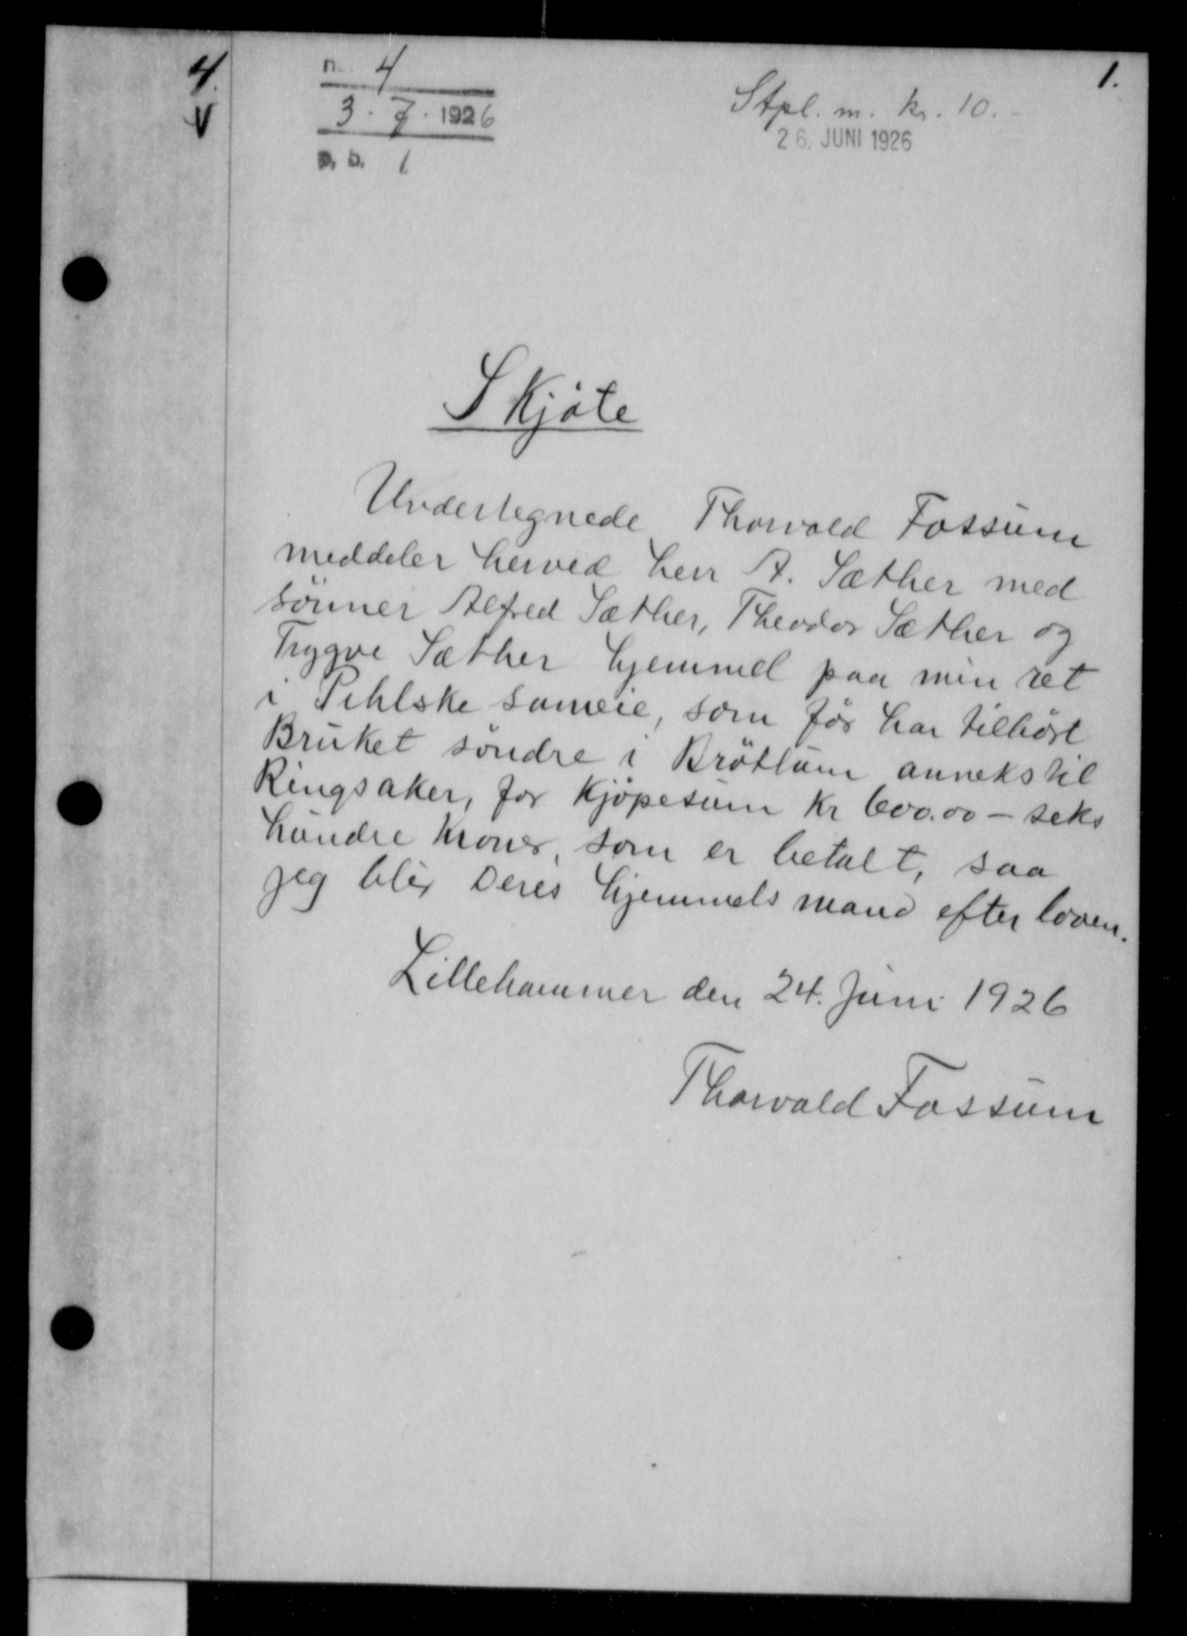 4.
V
n. 4
3. 7. 1926
p. b. 1
Stpl. m. kr. 10.-
26. JUNI 1926
1.
Skjöte
Undertegnede Thorvald Fossum
meddeler herved herr A. Sæther med
sönner Alfred Sæther, Theodor Sæther og
Trygve Sæther hjemmel paa min ret
i Pihlske sameie, som før har tilhørt
Bruket söndre i Bröttum anneks til
Ringsaker, for Kjöpesum Kr 600.00 - seks
hundre Kroner, som er betalt, saa
jeg blir Deres hjemmels mand efter loven.
Lillehammer den 24. Juni 1926
Thorvald Fossum